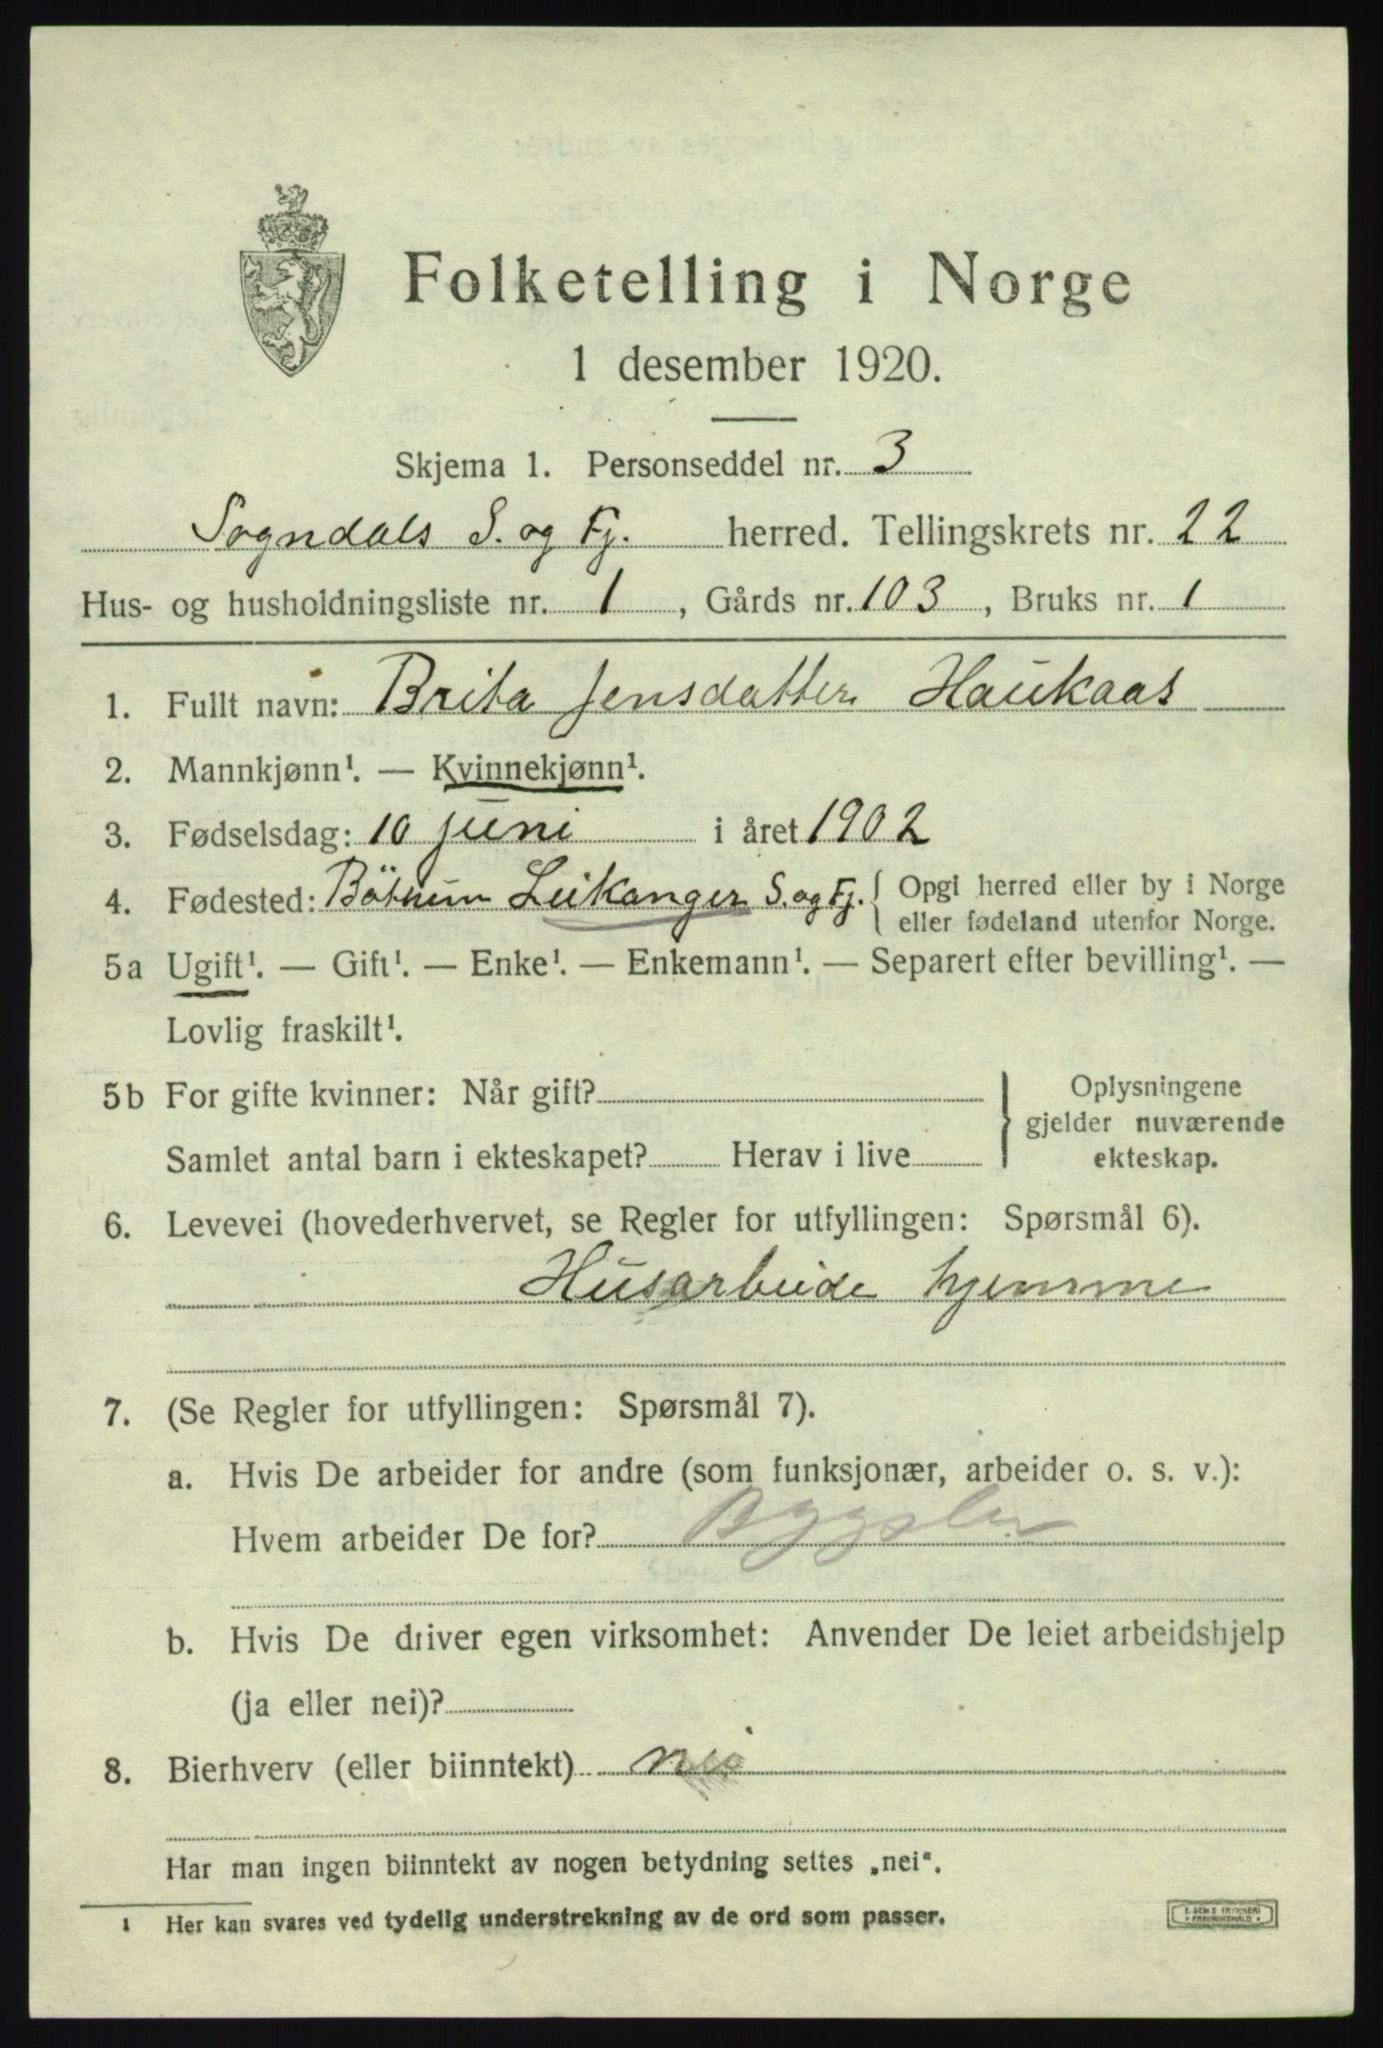 Folketelling i Norge
1 desember 1920.
Skjema 1. Personseddel nr. 3
Sogndals S. og Fj. herred. Tellingskrets nr. 22
Hus- og husholdningsliste nr. 1, Gårds nr. 103, Bruks nr. 1
1. Fullt navn: Brita Jensdatter Haukaas
2. Mannkjønn¹. — Kvinnekjønn¹.
3. Fødselsdag: 10 juni i året 1902
4. Fødested: Leikanger S. og Fj. { Opgi herred eller by i Norge
eller fødeland utenfor Norge.
5a Ugift¹. — Gift¹. — Enke¹. — Enkemann¹. — Separert efter bevilling¹. —
Lovlig fraskilt¹.
5b For gifte kvinner: Når gift?
Samlet antal barn i ekteskapet? Herav i live
} Oplysningene
gjelder nuværende
ekteskap.
6. Levevei (hovederhvervet, se Regler for utfyllingen: Spørsmål 6).
Husarbeide hjemme
7. (Se Regler for utfyllingen: Spørsmål 7).
a. Hvis De arbeider for andre (som funksjonær, arbeider o. s. v.):
Hvem arbeider De for?
b. Hvis De driver egen virksomhet: Anvender De leiet arbeidshjelp
(ja eller nei)?
8. Bierhverv (eller biinntekt) nei
Har man ingen biinntekt av nogen betydning settes „nei“.
1 Her kan svares ved tydelig understrekning av de ord som passer.